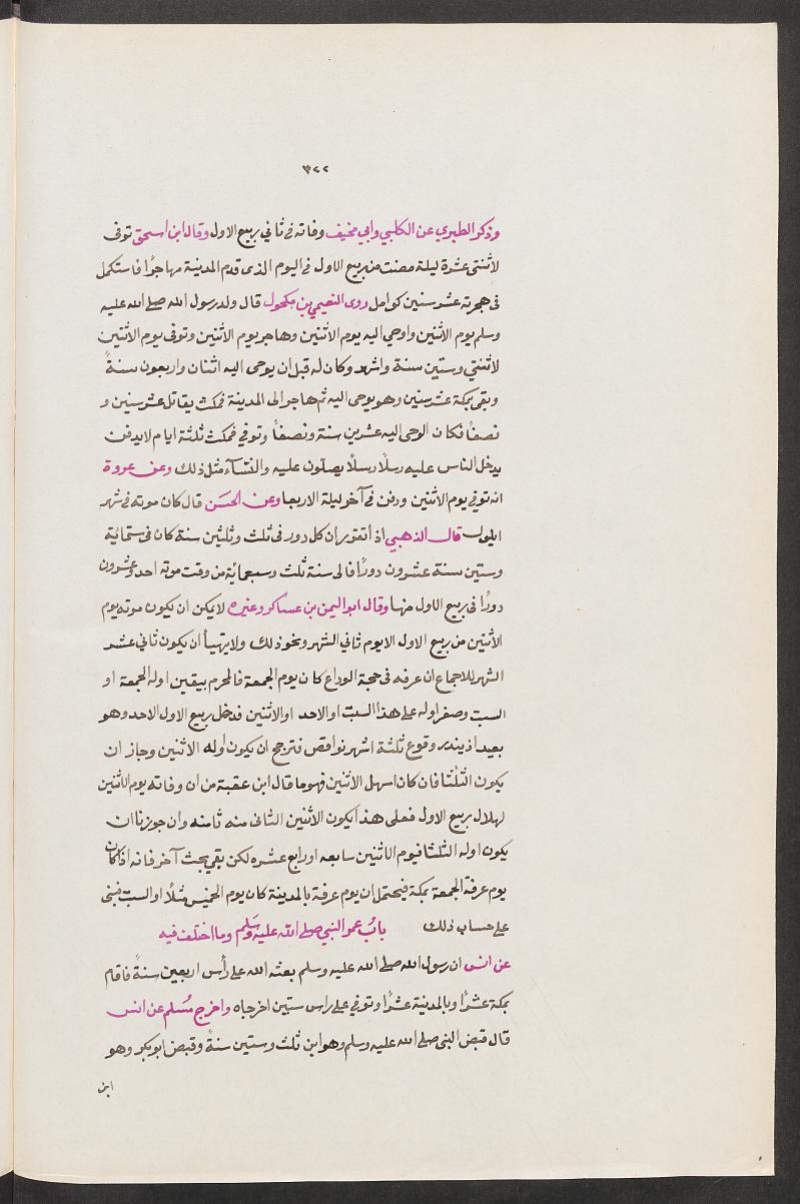 ٣٢٢
وذكر الطبري عن الكلبي وابي مخنيف وفاته في ثاني ربيع الاول وقال ابن اسحق توفى
لاثنتى عشرة ليلة مضت من ربيع الاول في اليوم الذى قدم المدينة مهاجرًا فاستكمل
فى هجرته عشر سنين كوامل روى النعيمي بن مكحول قال ولد رسول الله صلى الله عليه
وسلم يوم الاثنين واوحي اليه يوم الاثنين وهاجر يوم الاثنين وتوفى يوم الاثنين
لاثنتي وستين سنة واشهر وكان له قبل ان يوحى اليه اثنان واربعون سنةً
وبقى بمكة عشر سنين وهو يوحى اليه ثم هاجر الى المدينة فمكث يقاتل عشر سنين و
نصفاً فكان الوحى اليه عشرين سنة ونصفاً وتوفي فمكث ثلثة ايام لا يدفن
يدخل الناس عليه رسلًا رسلًا يصلون عليه والنسآء مثل ذلك وعن عروة
انه توفي يوم الاثنين ودفن في آخر ليلة الاربعا وعن الحسن قال كان موته في شهر
ايلول قال الذهبي اذ اتقور ان كل دور فى ثلث وثلثين سنة كان فى ستمائية
وستين سنة عشرون دورًا فالى سنة ثلث وسبعمائية من وقت موته احد وعشرون
دورًا فى ربيع الاول منها وقال ابو اليمن بن عساكر وغيره لا يمكن ان يكون موته يوم
الاثنين من ربيع الاول الا يوم ثاني الشهر ونحو ذلك ولا يتهيأ ان يكون ثاني عشر
الشهر للاجماع ان عرفه فى حجة الوداع كان يوم الجمعة فالمحرم بيقين اوله الجمعة او
السبت وصفر اوله على هذا السبت او الاحد او الاثنين فدخل ربيع الاول الاحد وهو
بعيد اذ يندر وقوع ثلثة اشهر نواقص فترجح ان يكون اوله الاثنين وجاز ان
يكون الثلثا فان كان استهل الاثنين فهو ما قال ابن عقبة من ان وفاته يوم الاثنين
لهلال ربيع الاول فعلى هذا يكون الاثنين الثانى منه ثامنه وان جوزنا ان
يكون اوله الثلثا فيوم الاثنين سابعه او رابع عشره لكن بقي بحث آخر فانه اذا كان
يوم عرفة الجمعة بمكة فيحتمل ان يوم عرفة بالمدينة كان يوم الخميس مثلًا او السبت فنبنى
على حساب ذلك بابُ عمر النبي صلى الله عليه وسلم وما اختلف فيه
عن انس ان رسول الله صلى الله عليه وسلم بعثه الله على رأس اربعين سنةً فاقام
بمكة عشرًا وبالمدنية عشرًا وتوفي على راس ستين اخرجاه واخرج مسلم عن انس
قال قبض النبى صلى الله عليه وسلم وهو ابن ثلث وستين سنةً وقبض ابو بكر وهو
ابن